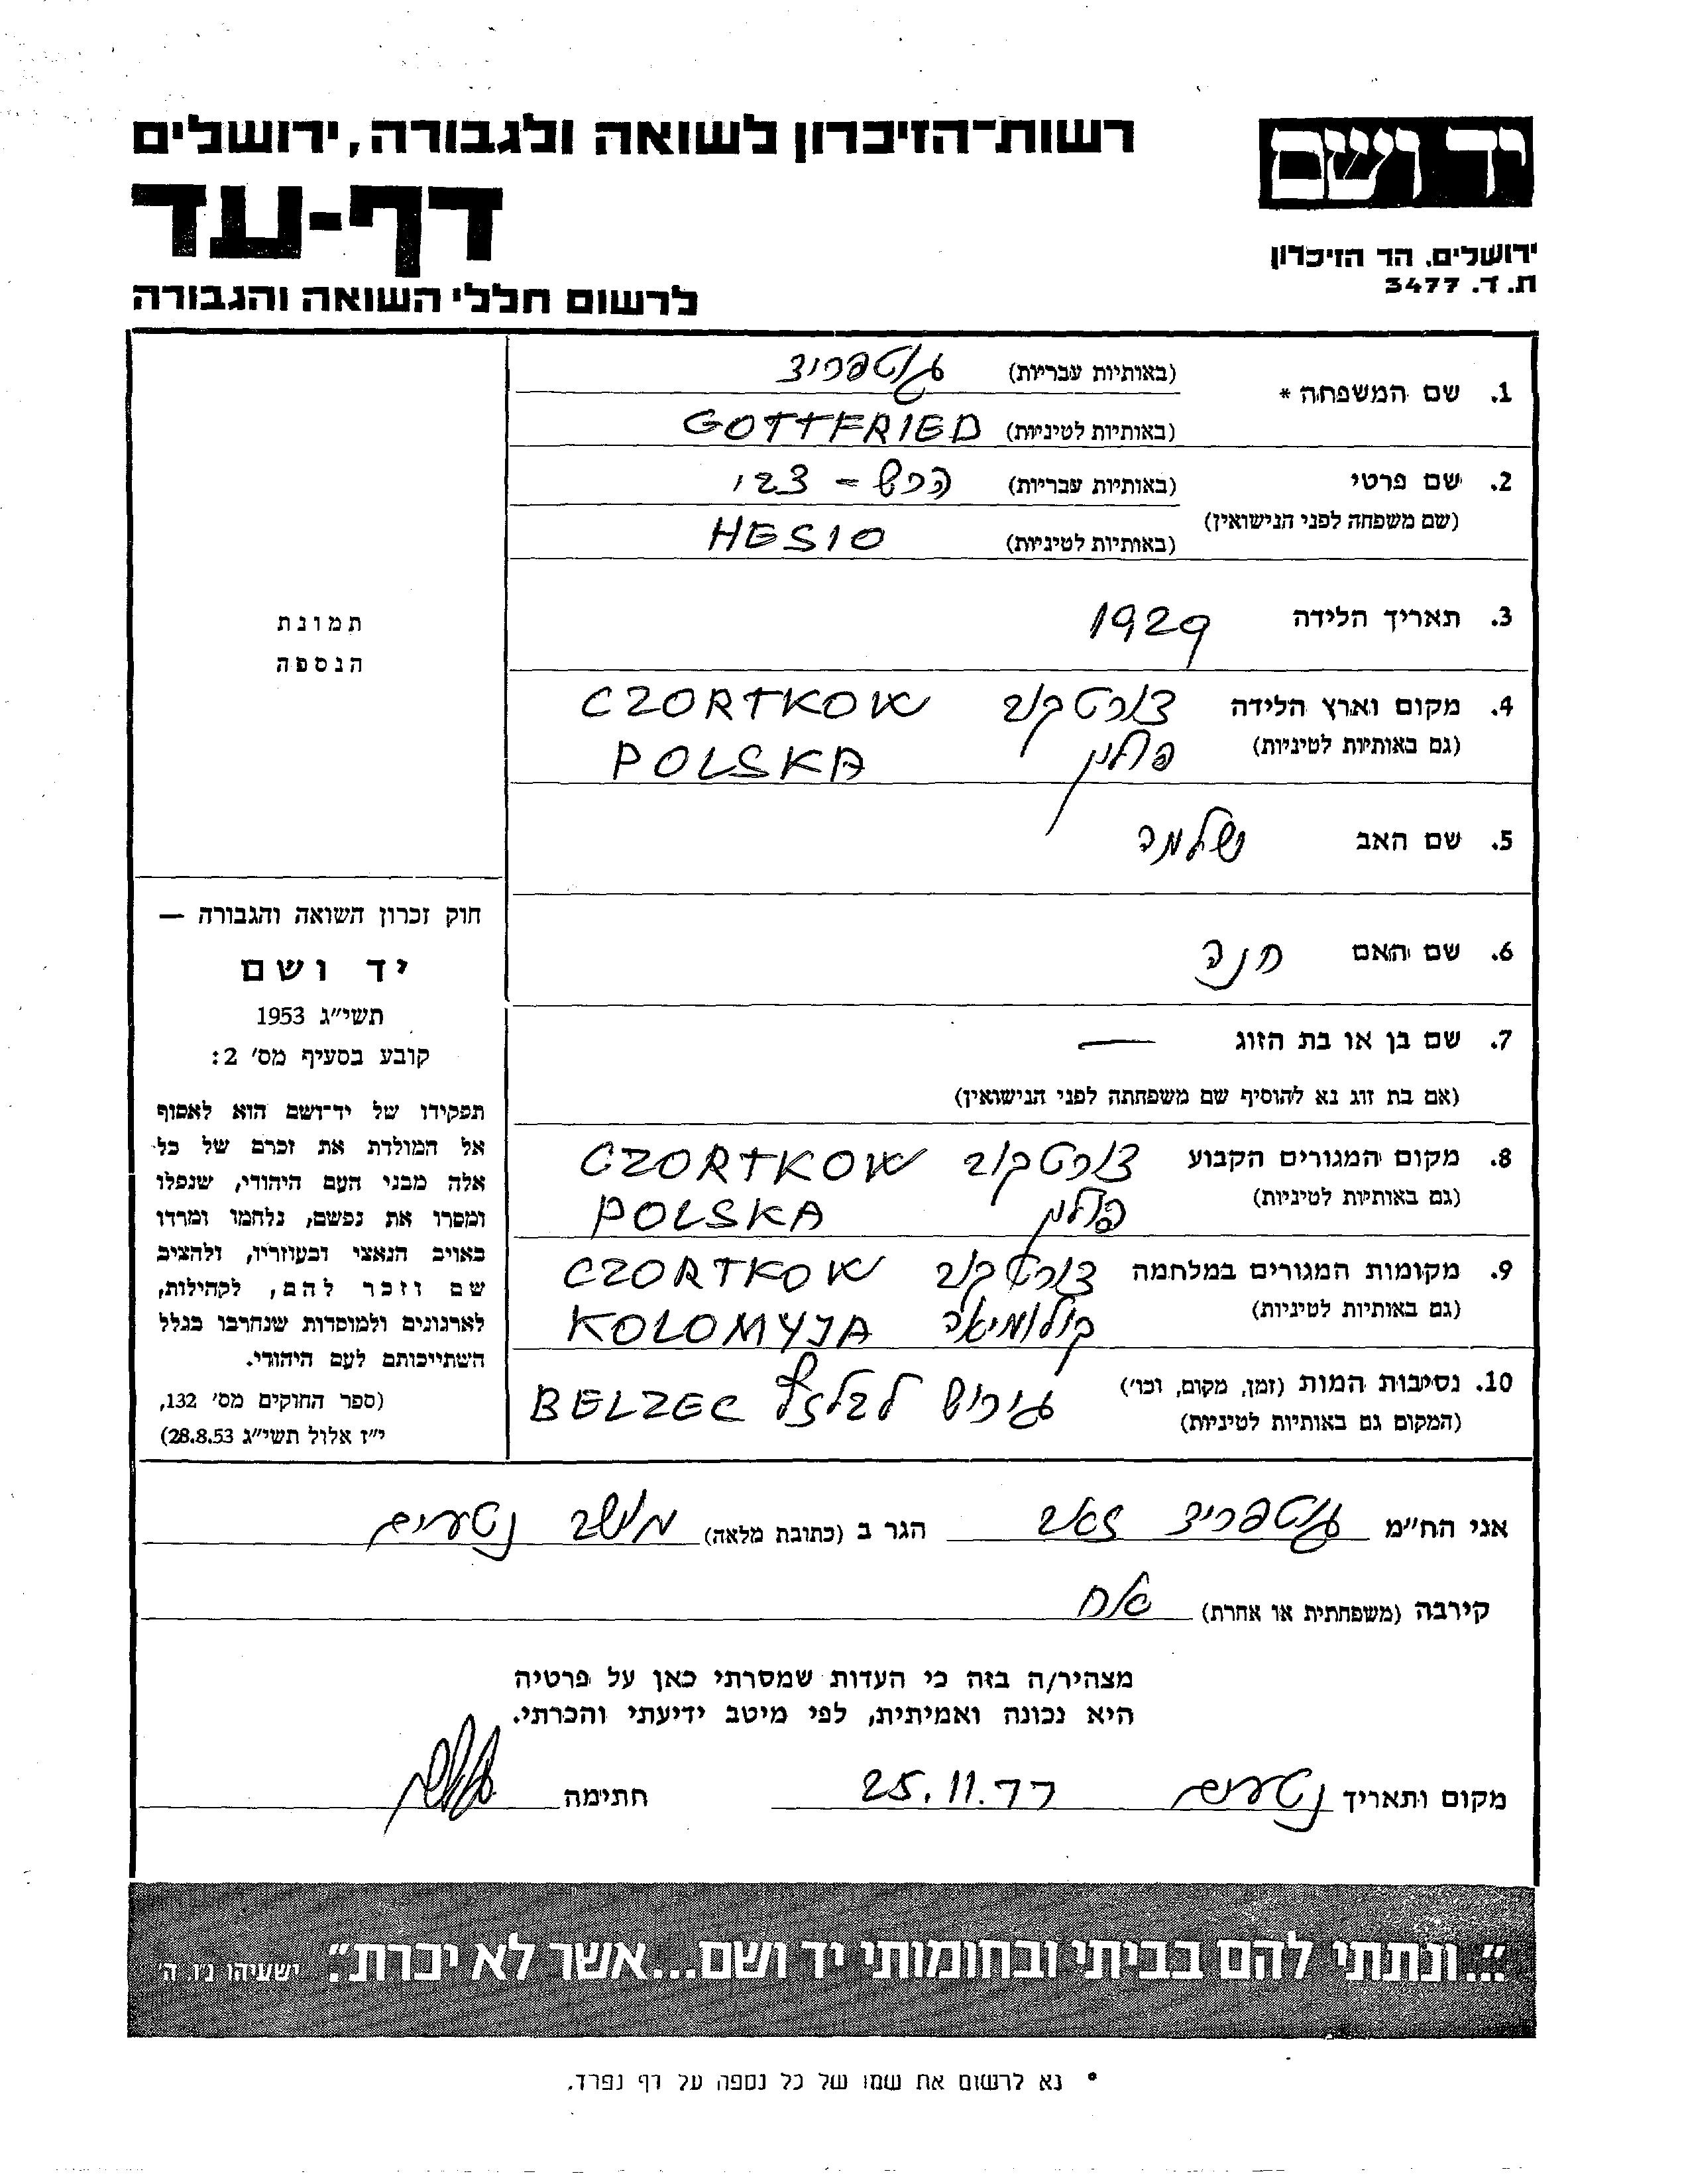 רשות־הזיכרון לשואה ולגבורה, ירושלים
יד ושם
דף-עד
ירושלים, הר הזיכרון
ת.ד. 3477
לרשום חללי השואה והגבורה
1. שם המשפחה * (באותיות עבריות) גוטפריד
(באותיות לטיניות) GOTTFRIED
2. שם פרטי (באותיות עבריות) הרש -
(שם משפחה לפני הנישואין)
(באותיות לטיניות) HESIO
3. תאריך הלידה 1929
תמונת
הנספה
4. מקום וארץ הלידה צורטקוב CZORTKOW
(גם באותיות לטיניות) פולין POLSKA
5. שם האב שלמה
6. שם האם חנה
7. שם בן או בת הזוג —
(אם בת זוג נא להוסיף שם משפחתה לפני הנישואין)
8. מקום המגורים הקבוע צורטקוב CZORTKOW
(גם באותיות לטיניות) פולין POLSKA
9. מקומות המגורים במלחמה צורטקוב CZORTKOW
(גם באותיות לטיניות) קולומיאה KOLOMYJA
10. נסיבות המות (זמן, מקום, וכו') גירוש לבלזץ BELZEC
(המקום גם באותיות לטיניות)
חוק זכרון השואה והגבורה —
יד ושם
תשי"ג 1953
קובע בסעיף מס' 2:
תפקידו של יד־ושם הוא לאסוף
אל המולדת את זכרם של כל
אלה מבני העם היהודי, שנפלו
ומסרו את נפשם, נלחמו ומרדו
באויב הנאצי ובעוזריו, ולהציב
שם וזכר להם, לקהילות,
לארגונים ולמוסדות שנחרבו בגלל
השתייכותם לעם היהודי.
(ספר החוקים מס' 132,
י"ז אלול תשי"ג 28.8.53)
אני הח"מ גוטפריד זאב הגר ב (כתובת מלאה) מושב נטעים
קירבה (משפחתית או אחרת) אח
מצהיר/ה בזה כי העדות שמסרתי כאן על פרטיה
היא נכונה ואמיתית, לפי מיטב ידיעתי והכרתי.
מקום ותאריך נטעים 25.11.77 חתימה
"...ונתתי להם בביתי ובחומותי יד ושם...אשר לא יכרת". ישעיהו נ"ו, ה'
* נא לרשום את שמו של כל נספה על דף נפרד.